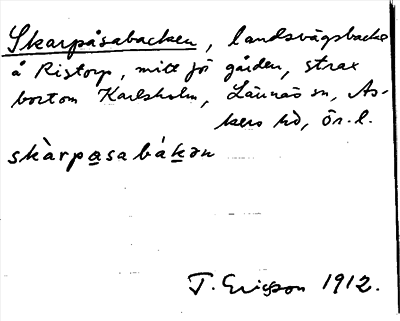 Skarpåsabacken, landsvägsbacke
å Ristorp, mitt för gården, strax
bortom Karlsholm, Lännäs sn, As-
kers hd, Ör. l.
skàrpasabákən
T. Ericsson 1912.